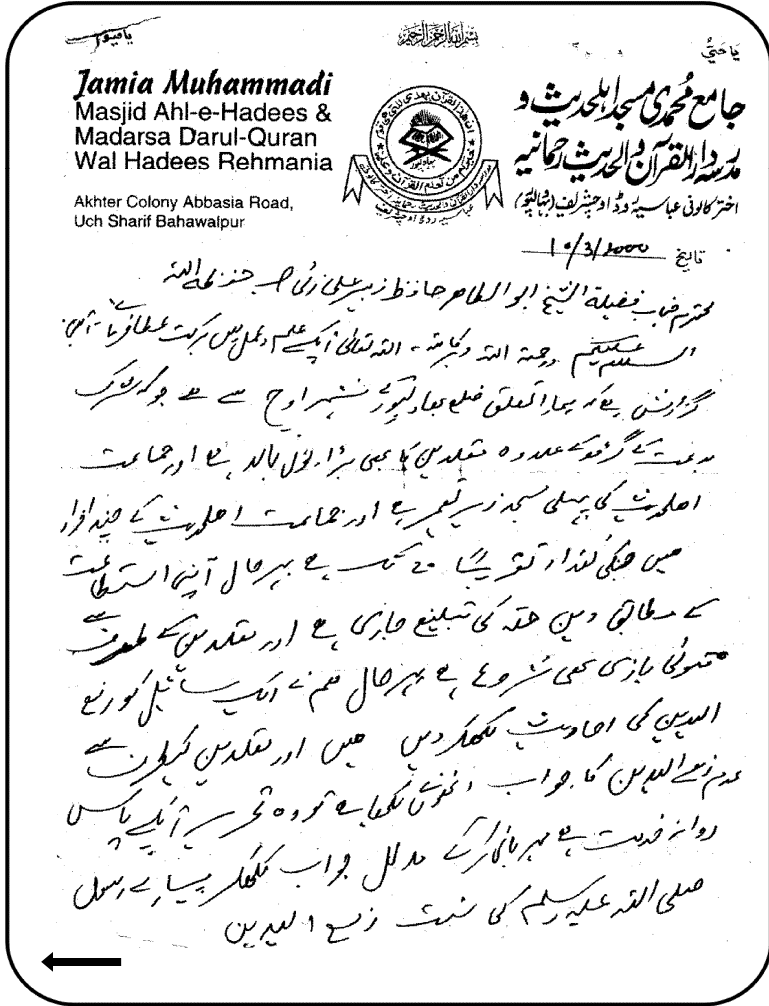 یا قیوم
بسم اللہ الرحمن الرحیم
یا حیّ
Jamia Muhammadi
Masjid Ahl-e-Hadees &
Madarsa Darul-Quran
Wal Hadees Rehmania
Akhter Colony Abbasia Road,
Uch Sharif Bahawalpur
جامع محمدی مسجد اہلحدیث و
مدرسہ دارالقرآن والحدیث رحمانیہ
اختر کالونی عباسیہ روڈ اوچشریف (بہاولپور)
تاریخ 10/3/2000
محترم جناب فضیلۃ الشیخ ابو الطاہر حافظ زبیر علی زئی حفظہ اللہ
السلام علیکم ورحمۃ اللہ وبرکاتہ ۔ اللہ تعالیٰ آپکے علم و عمل میں برکت عطا فرمائے آمین
گزارش ہے کہ ہمارا تعلق ضلع بہاولپور کے شہر اوچ سے ہے جو کہ شرک
بدعت کے گڑھ کے علاوہ مقلدین کا بھی بڑا بول بالا ہے اور جماعت
اہلحدیث کی پہلی مسجد زیر تعمیر ہے اور جماعت اہلحدیث کے چند افراد
ہیں جنکی تعداد تقریباً 20 تک ہے بہر حال اپنی استطاعت
کے مطابق دین حقہ کی تبلیغ جاری ہے اور مقلدین کے طرف سے
فتویٰ بازی بھی شروع ہے بہر حال ہم نے ایک سائل کو رفع
الیدین کی احادیث لکھکر دیں ہیں اور مقلدین کیطرف سے
عدم رفع الیدین کا جواب انھوں نے لکھا ہے تو وہ تحریر آپکے پاس
روانہ خدمت ہے مہربانی کر کے مدلل جواب لکھکر پیارے رسول
صلی اللہ علیہ وسلم کی سنت رفع الیدین